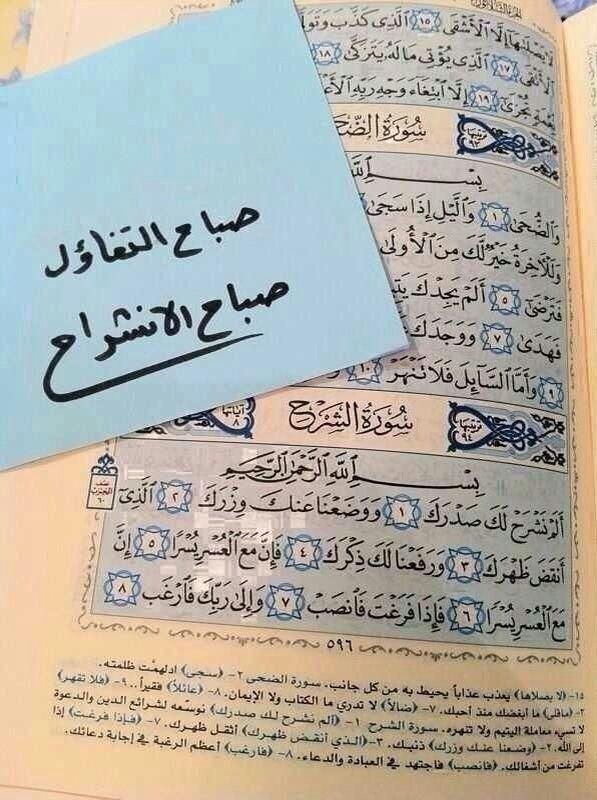 الجزء الثلاثون
لَا يَصْلَىٰهَآ إِلَّا ٱلْأَشْقَى ١٥ ٱلَّذِى كَذَّبَ وَتَوَلَّىٰ
ٱلْأَتْقَى ١٧ ٱلَّذِى يُؤْتِى مَالَهُۥ يَتَزَكَّىٰ ١٨
تُجْزَىٰٓ ١٩ إِلَّا ٱبْتِغَآءَ وَجْهِ رَبِّهِ
سُورَةُ الضُّحَى
ترتيبها ٩٣
بِسْمِ ٱللَّهِ
وَٱلضُّحَىٰ ١ وَٱلَّيْلِ إِذَا سَجَىٰ
وَلَلْأَخِرَةُ خَيْرٌ لَّكَ مِنَ ٱلْأُولَىٰ
فَتَرْضَىٰٓ ٥ أَلَمْ يَجِدْكَ
فَهَدَىٰ ٧ وَوَجَدَكَ
٩ وَأَمَّا ٱلسَّآئِلَ فَلَا تَنْهَرْ ١٠
صباح التفاؤل
صباح الانشراح
ترتيبها ٩٤ سُورَةُ الشَّرْحِ آياتها ٨
بِسْمِ ٱللَّهِ ٱلرَّحْمَٰنِ ٱلرَّحِيمِ
أَلَمْ نَشْرَحْ لَكَ صَدْرَكَ ١ وَوَضَعْنَا عَنكَ وِزْرَكَ ٢ ٱلَّذِىٓ
أَنقَضَ ظَهْرَكَ ٣ وَرَفَعْنَا لَكَ ذِكْرَكَ ٤ فَإِنَّ مَعَ ٱلْعُسْرِ يُسْرًا ٥ إِنَّ
مَعَ ٱلْعُسْرِ يُسْرًا ٦ فَإِذَا فَرَغْتَ فَٱنصَبْ ٧ وَإِلَىٰ رَبِّكَ فَٱرْغَب ٨
نصف الحزب ٦٠
٥٩٦
١٥- (لا يصلاها) يعذب عذاباً يحيط به من كل جانب. سورة الضحى ٢- (سجى) ادلهمّت ظلمته.
٣- (ماقلى) ما أبغضك منذ أحبك. ٧- (ضالاً) لا تدري ما الكتاب ولا الإيمان. ٨- (عائلاً) فقيراً. ٩- (فلا تقهر)
لا تسيء معاملة اليتيم ولا تنهره. سورة الشرح ١- (ألم نشرح لك صدرك) نوسّعه لشرائع الدين والدعوة
إلى الله. ٢- (وضعنا عنك وزرك) ذنبك. ٣- (الذي أنقض ظهرك) أثقل ظهرك. ٧- (فإذا فرغت) إذا
تفرغت من أشغالك. (فانصب) فاجتهد في العبادة والدعاء. ٨- (فارغب) أعظم الرغبة في إجابة دعائك.